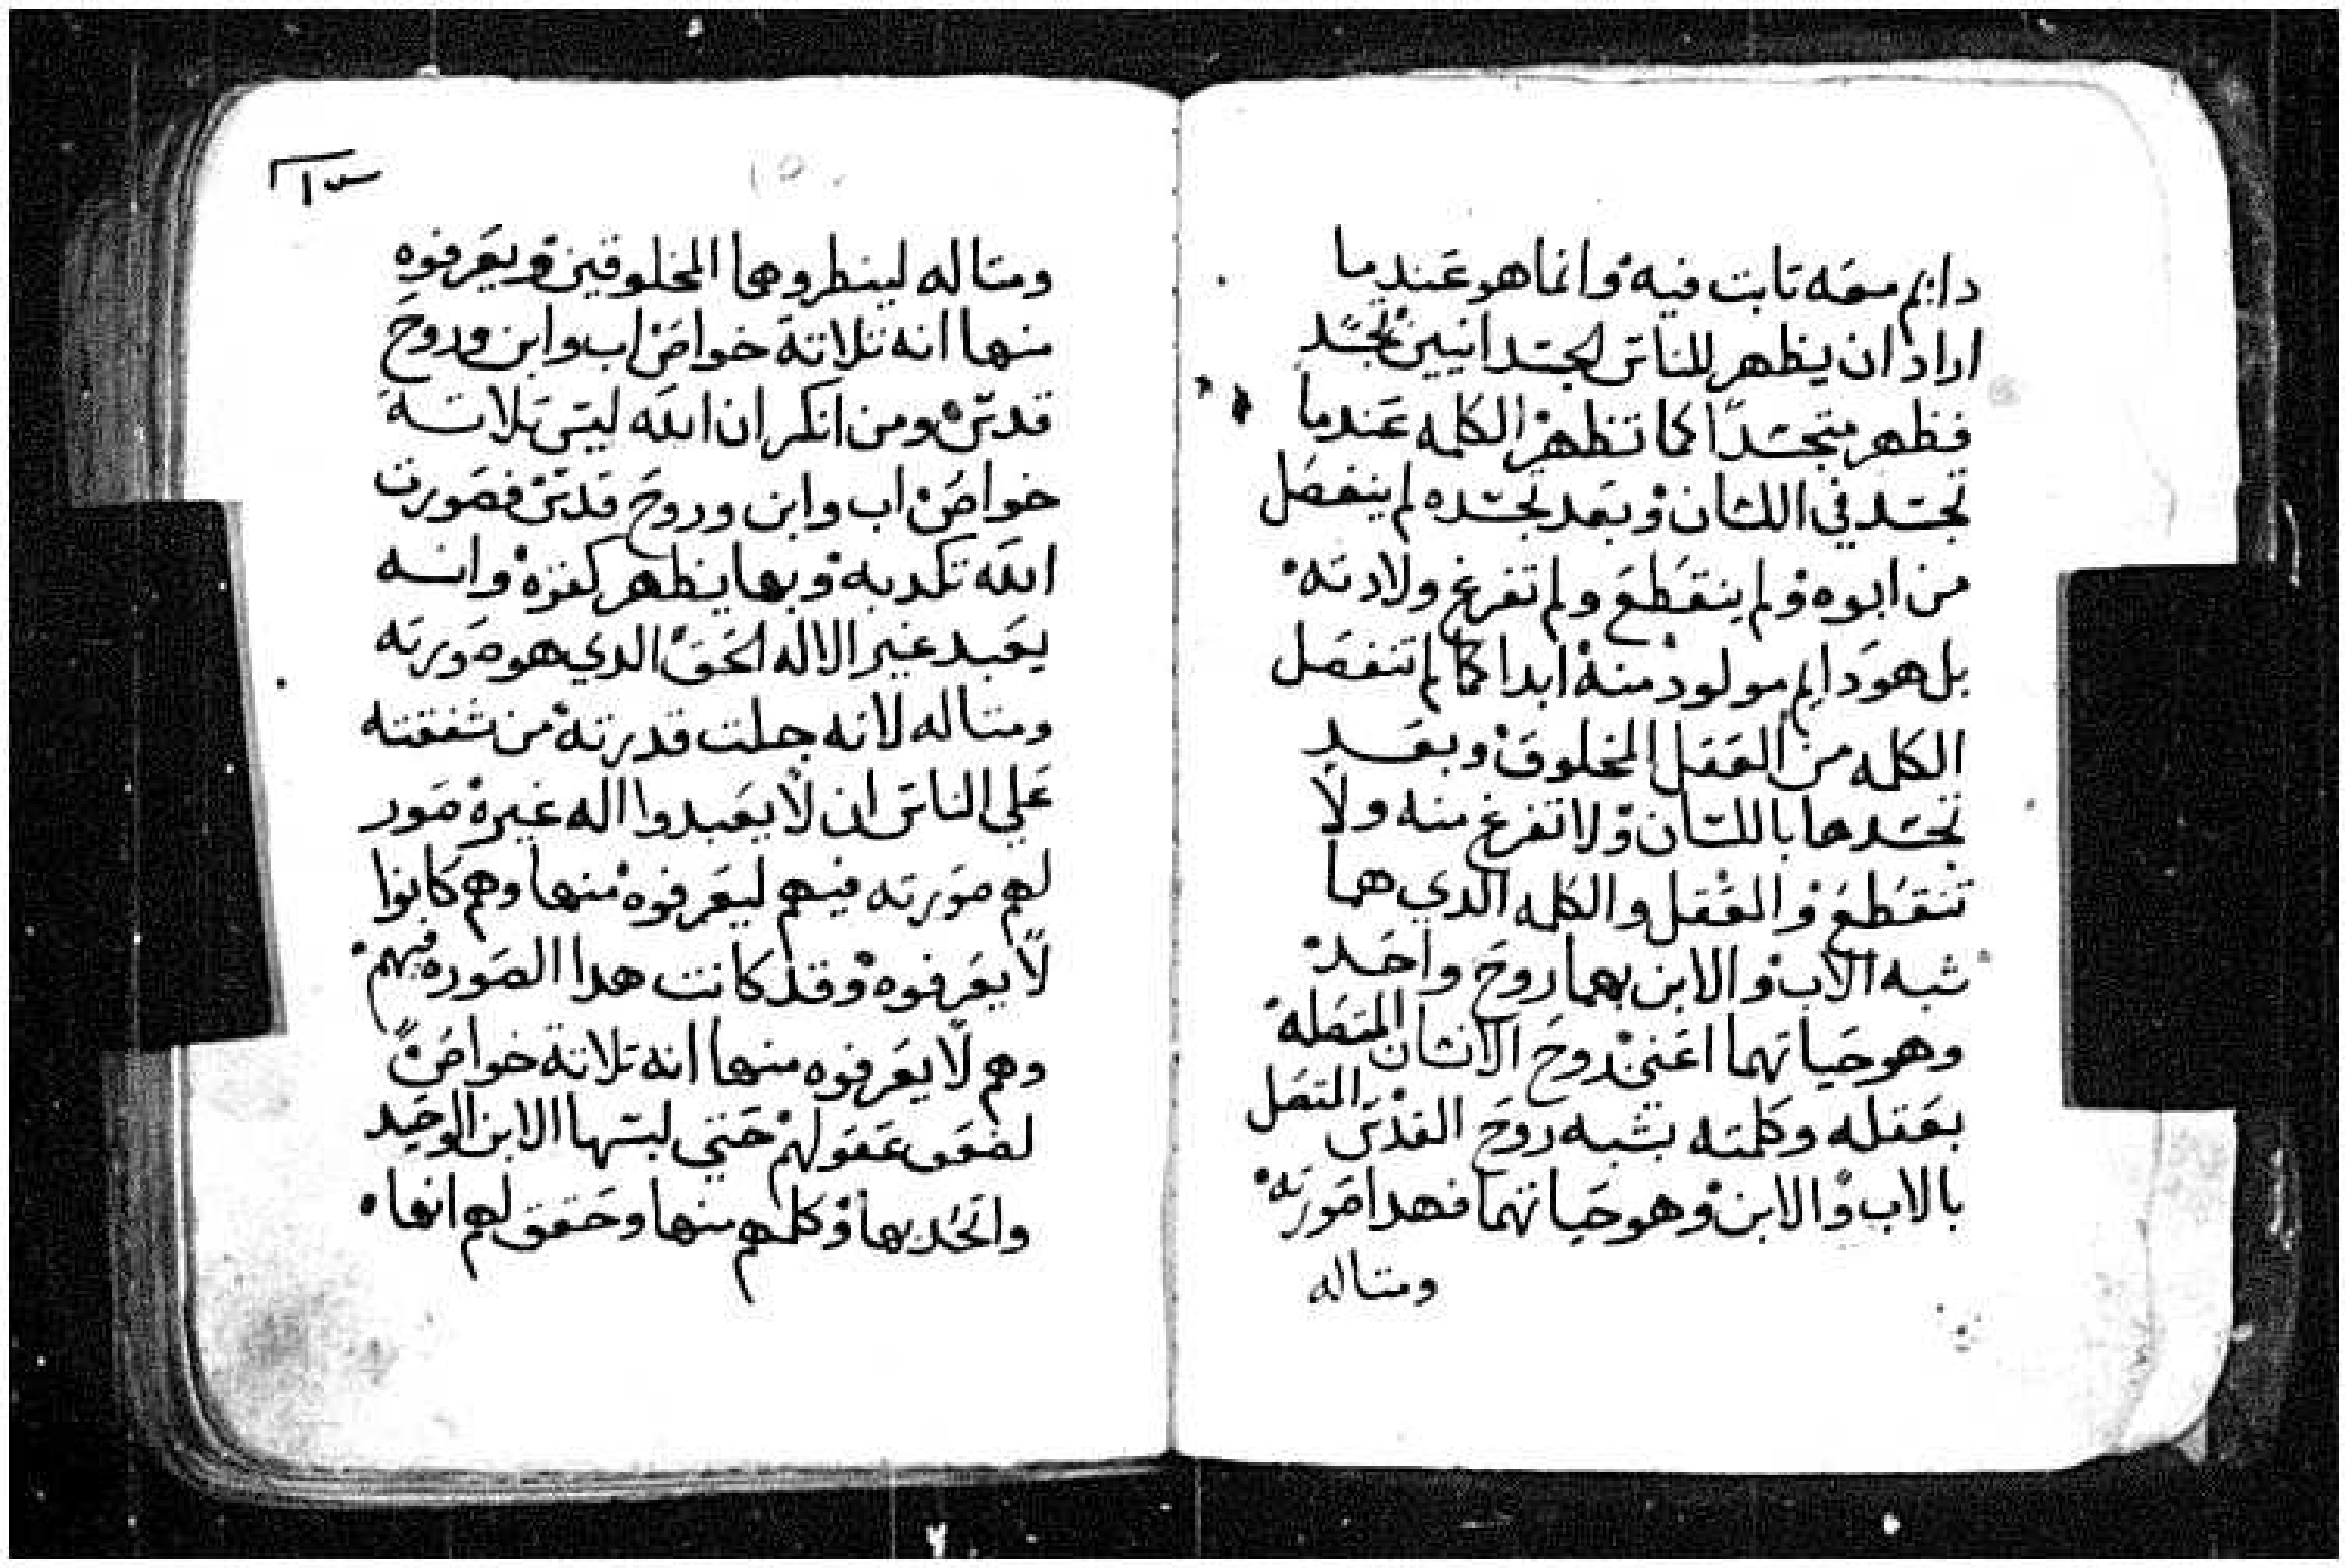 دايم معه تابت فيه وانما هو عندما
اراد ان يظهر للناس الجسدانيين تجسد
فظهر متجسدا كما تظهر الكلمه عندما
تجسد في اللسان وبعد تجسده لم ينفصل
من ابوه ولم ينقطع ولم تفرغ ولادته
بل هو دايم مولود منه ابدا كما لم تنفصل
الكلمه من العقل المخلوق وبعد
تجسدها باللسان ولا تفرغ منه ولا
تنقطع والعقل والكلمه الدي هما
شبه الاب والابن بهما روح واحد
وهو حياتهما اعني روح الانسان المتصله
بعقله وكلمته بشبه روح القدس المتصل
بالاب والابن وهو حياتهما فهدا صورته
ومتاله
ومتاله لينظروها المخلوقين ويعرفوه
منها انه تلاتة خواص اب وابن وروح
قدس ومن انكر ان الله ليس تلاتة
خواص اب وابن وروح قدس فصورت
الله تكدبه وبها يظهر كفره وانه
يعبد غير الاله الحق الدي هو صورته
ومتاله لانه جلت قدرته من شفقته
علي الناس ان لا يعبدوا اله غيره صور
لهم صورته فيهم ليعرفوه منها وهم كانوا
لا يعرفوه وقد كانت هدا الصوره فيهم
وهم لا يعرفوه منها انه تلاتة خواص
لضعف عقولهم حتي لبسها الابن الوحيد
واتحد بها وكلمهم منها وحقق لهم انها